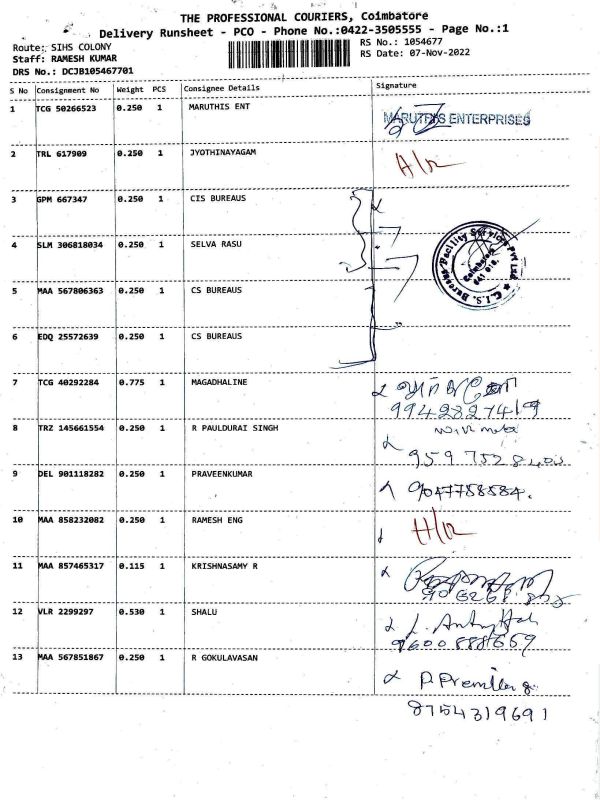 THE PROFESSIONAL COURIERS, Coimbatore
Delivery Runsheet - PCO - Phone No.:0422-3505555 - Page No.:1
Route: SIHS COLONY
RS No.: 1054677
Staff: RAMESH KUMAR
RS Date: 07-Nov-2022
DRS No.: DCJB105467701
S No Consignment No Weight PCS Consignee Details Signature
1 TCG 50266523 0.250 1 MARUTHIS ENT MARUTHIS ENTERPRISES
2 TRL 617909 0.250 1 JYOTHINAYAGAM
3 GPM 667347 0.250 1 CIS BUREAUS
4 SLM 306818034 0.250 1 SELVA RASU
C.I.S. Bureaus Facility Services Pvt Ltd
Coimbatore
641 018.
5 MAA 567806363 0.250 1 CS BUREAUS
6 EDQ 25572639 0.250 1 CS BUREAUS
7 TCG 40292284 0.775 1 MAGADHALINE
8 TRZ 145661554 0.250 1 R PAULDURAI SINGH
9 DEL 901118282 0.250 1 PRAVEENKUMAR 9047758584.
10 MAA 858232082 0.250 1 RAMESH ENG
11 MAA 857465317 0.115 1 KRISHNASAMY R
12 VLR 2299297 0.530 1 SHALU
13 MAA 567851867 0.250 1 R GOKULAVASAN
8754319691